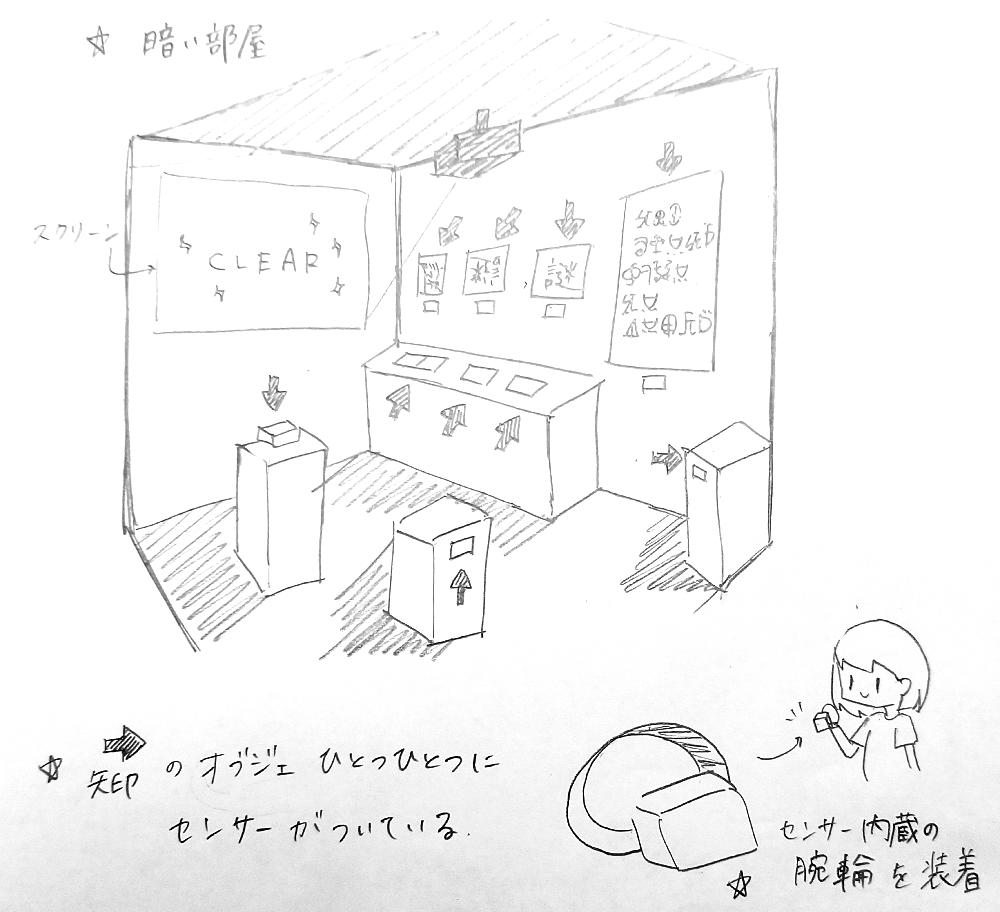 ☆ 暗い部屋
スクリーン
CLEAR
謎
☆ 矢印 の オブジェ ひとつひとつに
センサーがついている.
センサー内蔵の
☆ 腕輪を装着